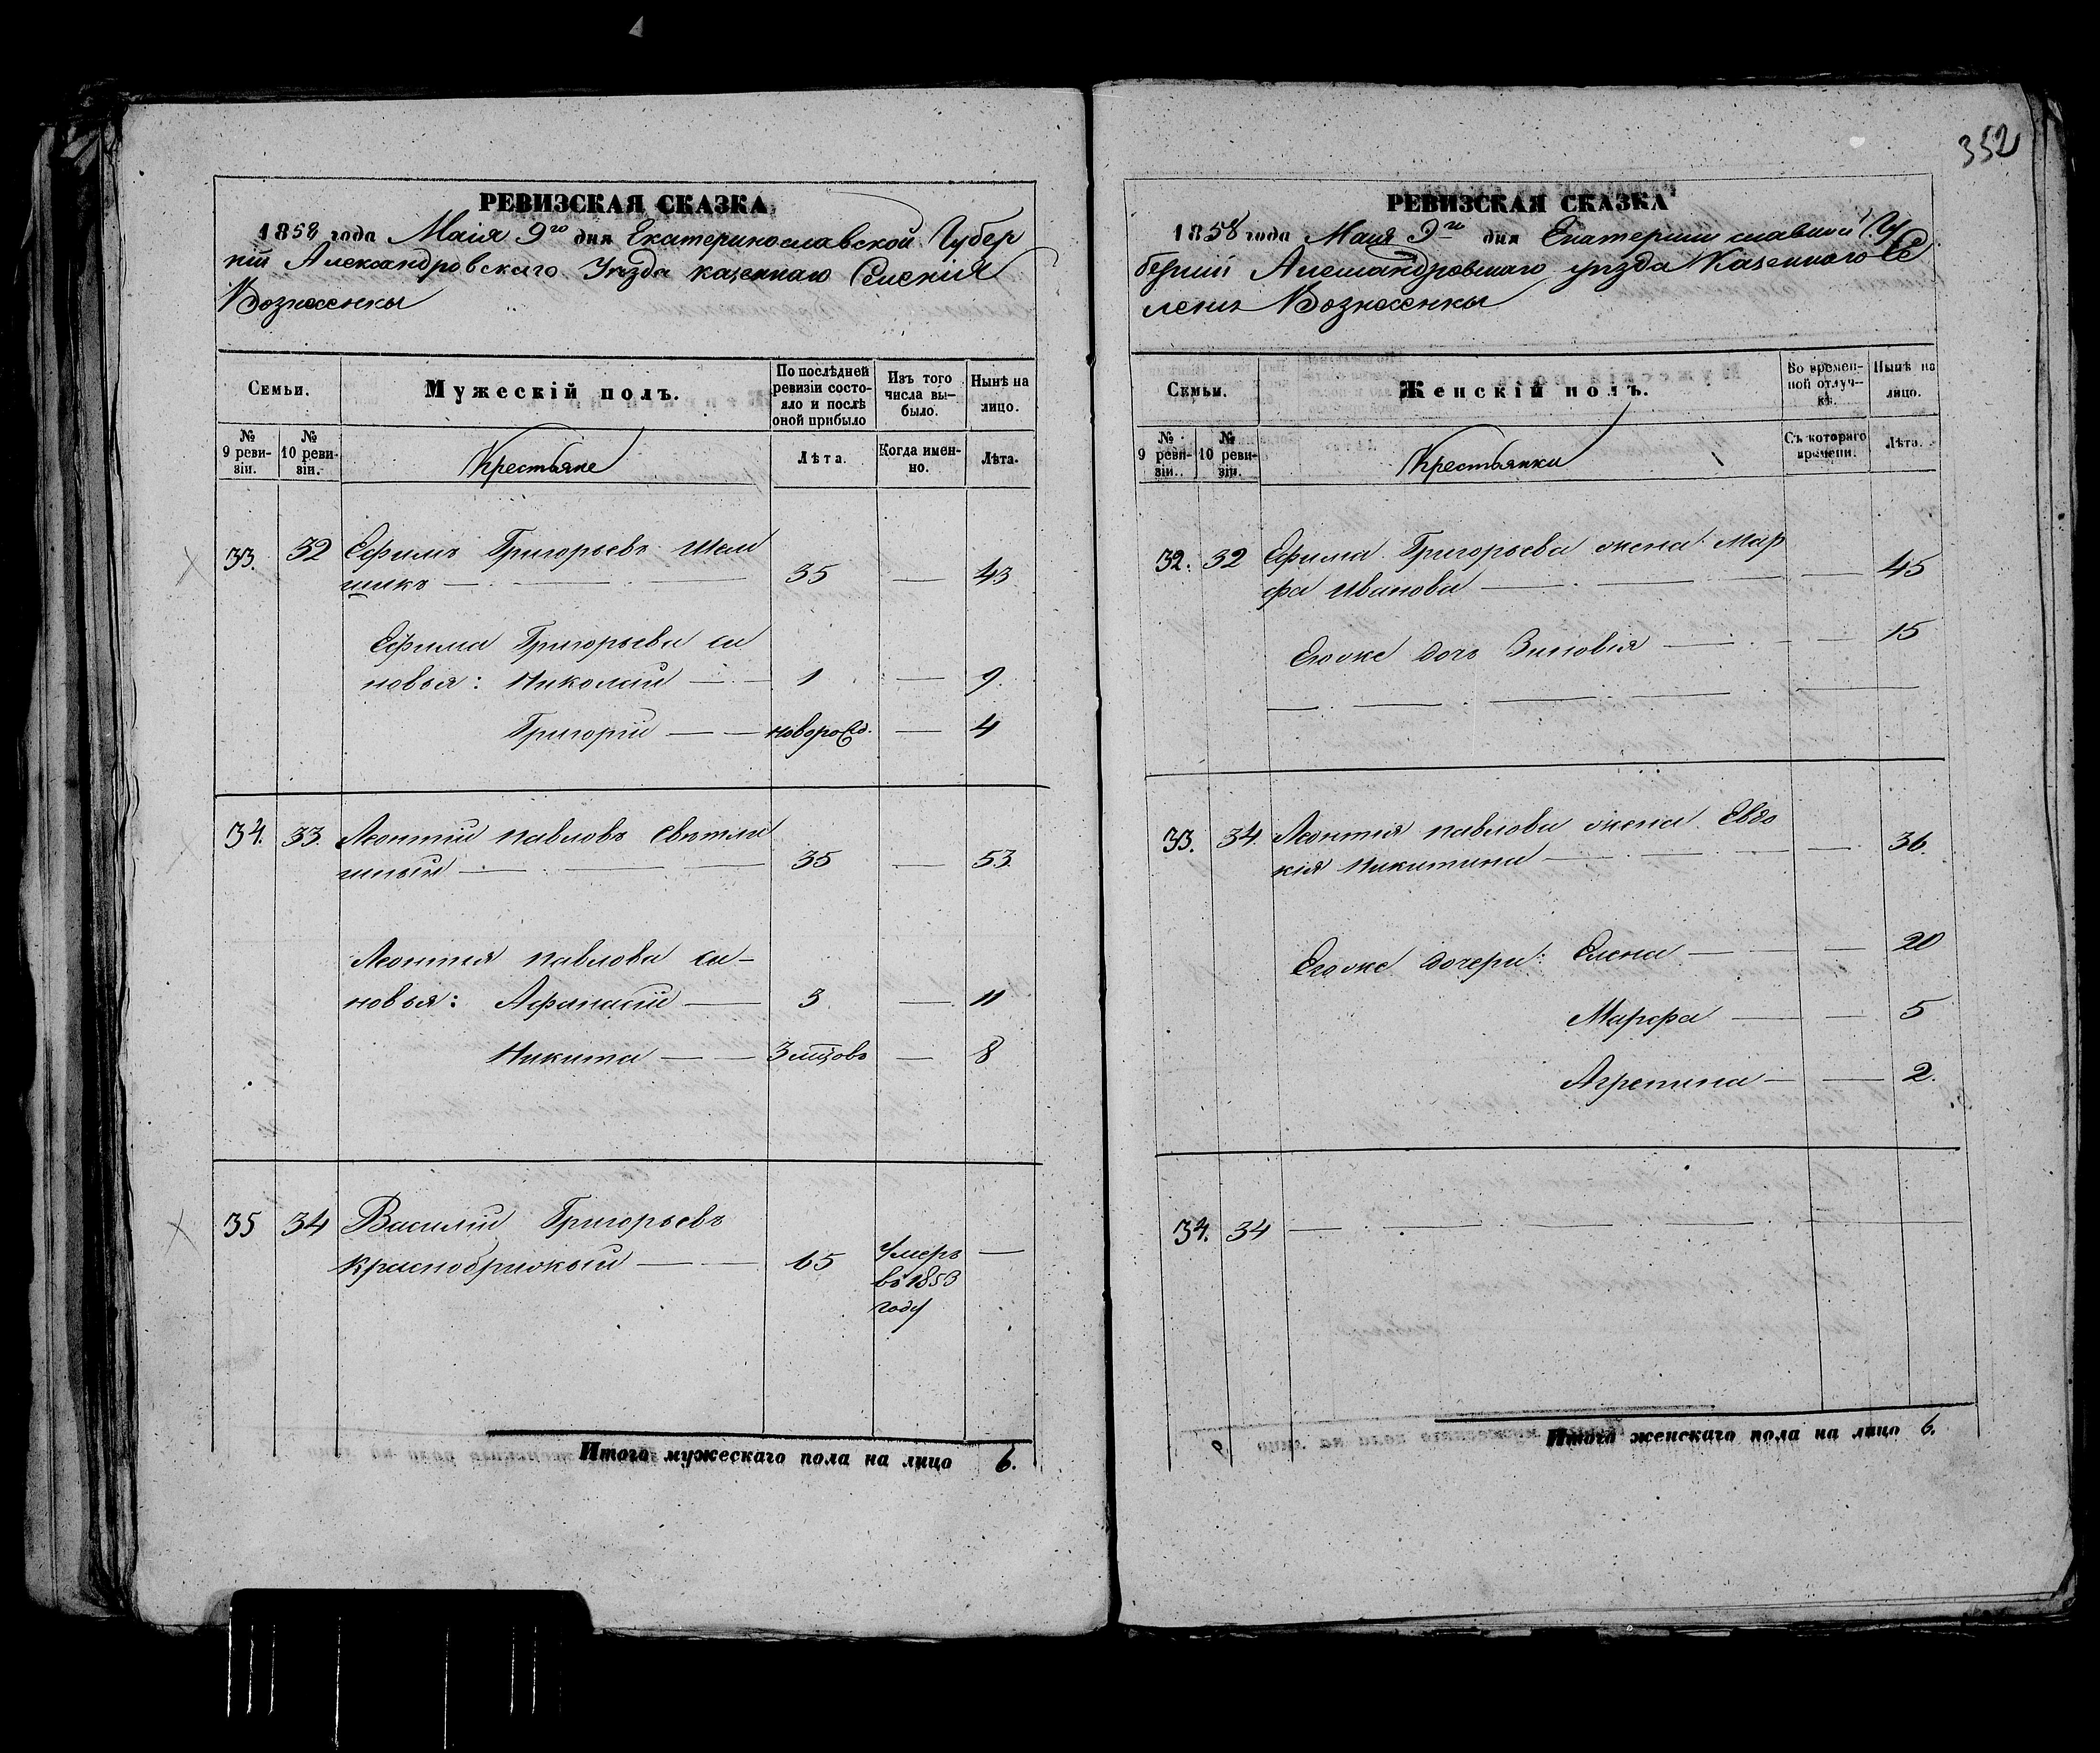 352
РЕВИЗСКАЯ СКАЗКА
1858 года Маія 9го дня Екатеринославской Губер
ніи Александровскаго Уѣзда казеннаго Селенія
Вознесенки
Семьи.
Мужескій полъ.
По послѣдней ревизіи состояло и послѣ оной прибыло
Изъ того числа выбыло.
Нынѣ на лицо.
№ 9 ревизіи.
№ 10 ревизіи.
Крестьяне
Лѣта.
Когда именно.
Лѣта.
33. 32 Ефимъ Григорьевъ
шикъ — 35 — 43
Ефима Григорьева си
новья: Николай — 1 — 9.
Григорій — новорожд. — 4
34. 33. Леонтій Павловъ Свѣтли
чный — 35 — 53.
Леонтія Павлова си-
новья: Афанасій — 3 — 11
Никита — 3 мцовъ — 8
35 34 Василій Григорьевъ
Краснобрижый — 65 Умеръ —
въ 1853
году
Итого мужескаго пола на лицо 6.
РЕВИЗСКАЯ СКАЗКА
1858 года Маия 9го дня Екатеринославской Гу
берніи Александровскаго уѣзда Казеннаго Се
ленія Вознесенки
Семьи.
Женскій полъ.
Во временной отлучкѣ.
Нынѣ на лицо.
№ 9 ревизіи.
№ 10 ревизіи.
Крестьянки
Съ котораго времени.
Лѣта.
32. 32 Ефима Григорьева жена Мар
фа Иванова — — 45
Егоже дочь Зиновія — — 15
33. 34. Леонтія Павлова жена Евдо
кія Никитина — — 36.
Егоже дочери: Елена — — 20
Марфа — — 5
Агрепина — — 2.
34. 34 —
Итого женскаго пола на лицо 6.